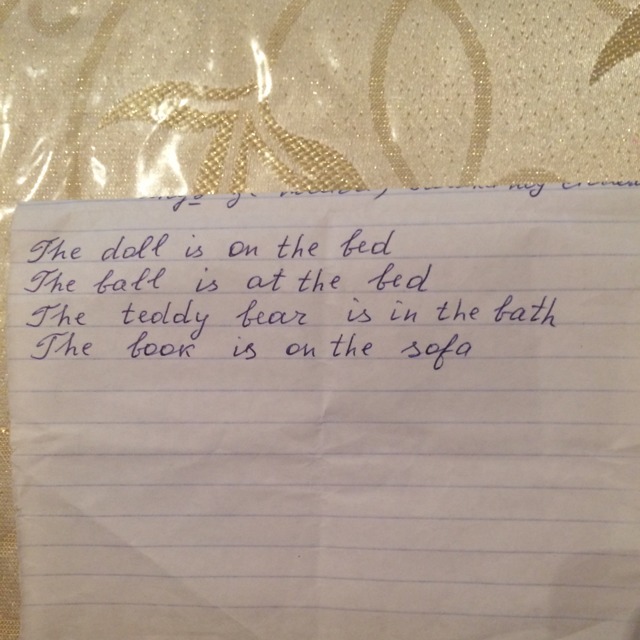 The doll is on the bed
The ball is at the bed
The teddy bear is in the bath
The book is on the sofa